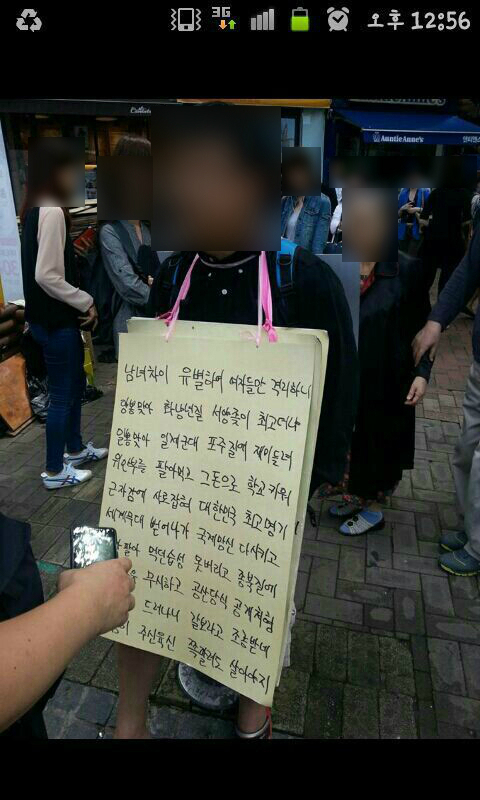 3G
오후 12:56
Candide
AuntieAnne's
남녀차이 유별하여 여자들만 격리하니
양뽕맞아 화냥년질 서양좆이 최고더냐
일뽕맞아 일제군대 포주질에 재미들려
위안부를 팔아먹고 그돈으로 학교키워
근자감에 사로잡혀 대한민국 최고명기
세계무대 뻗어나가 국제망신 다시키고
팔아 먹던습성 못버리고 종북질에
무시하고 공산당식 공개처형
드러나니 갈보라고 조롱받네
주신육신 쪽팔려도 살아야지